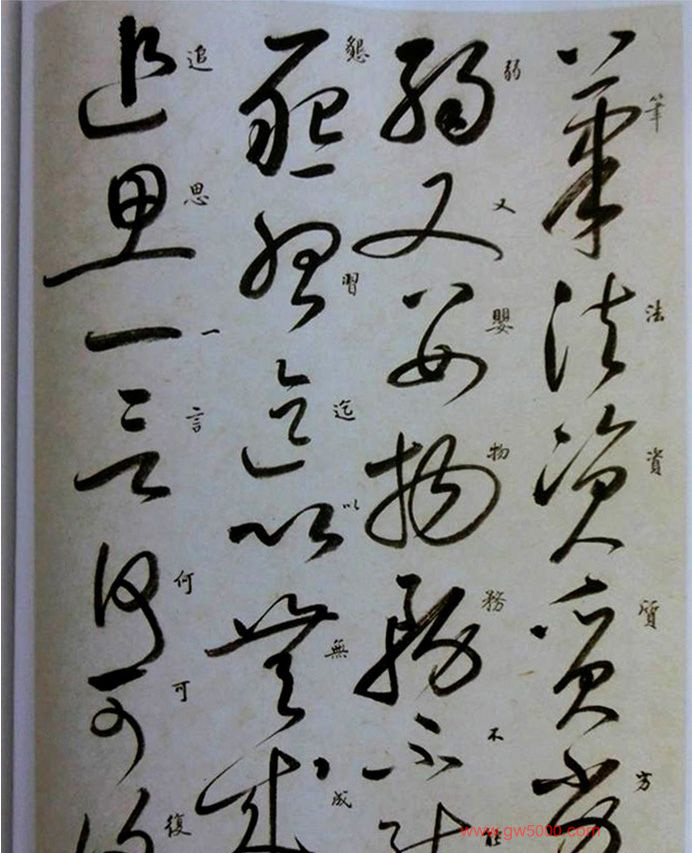 筆法資質方
弱又嬰物務不
懇習迄以無成
追思一言何可復
www.gw5000.com